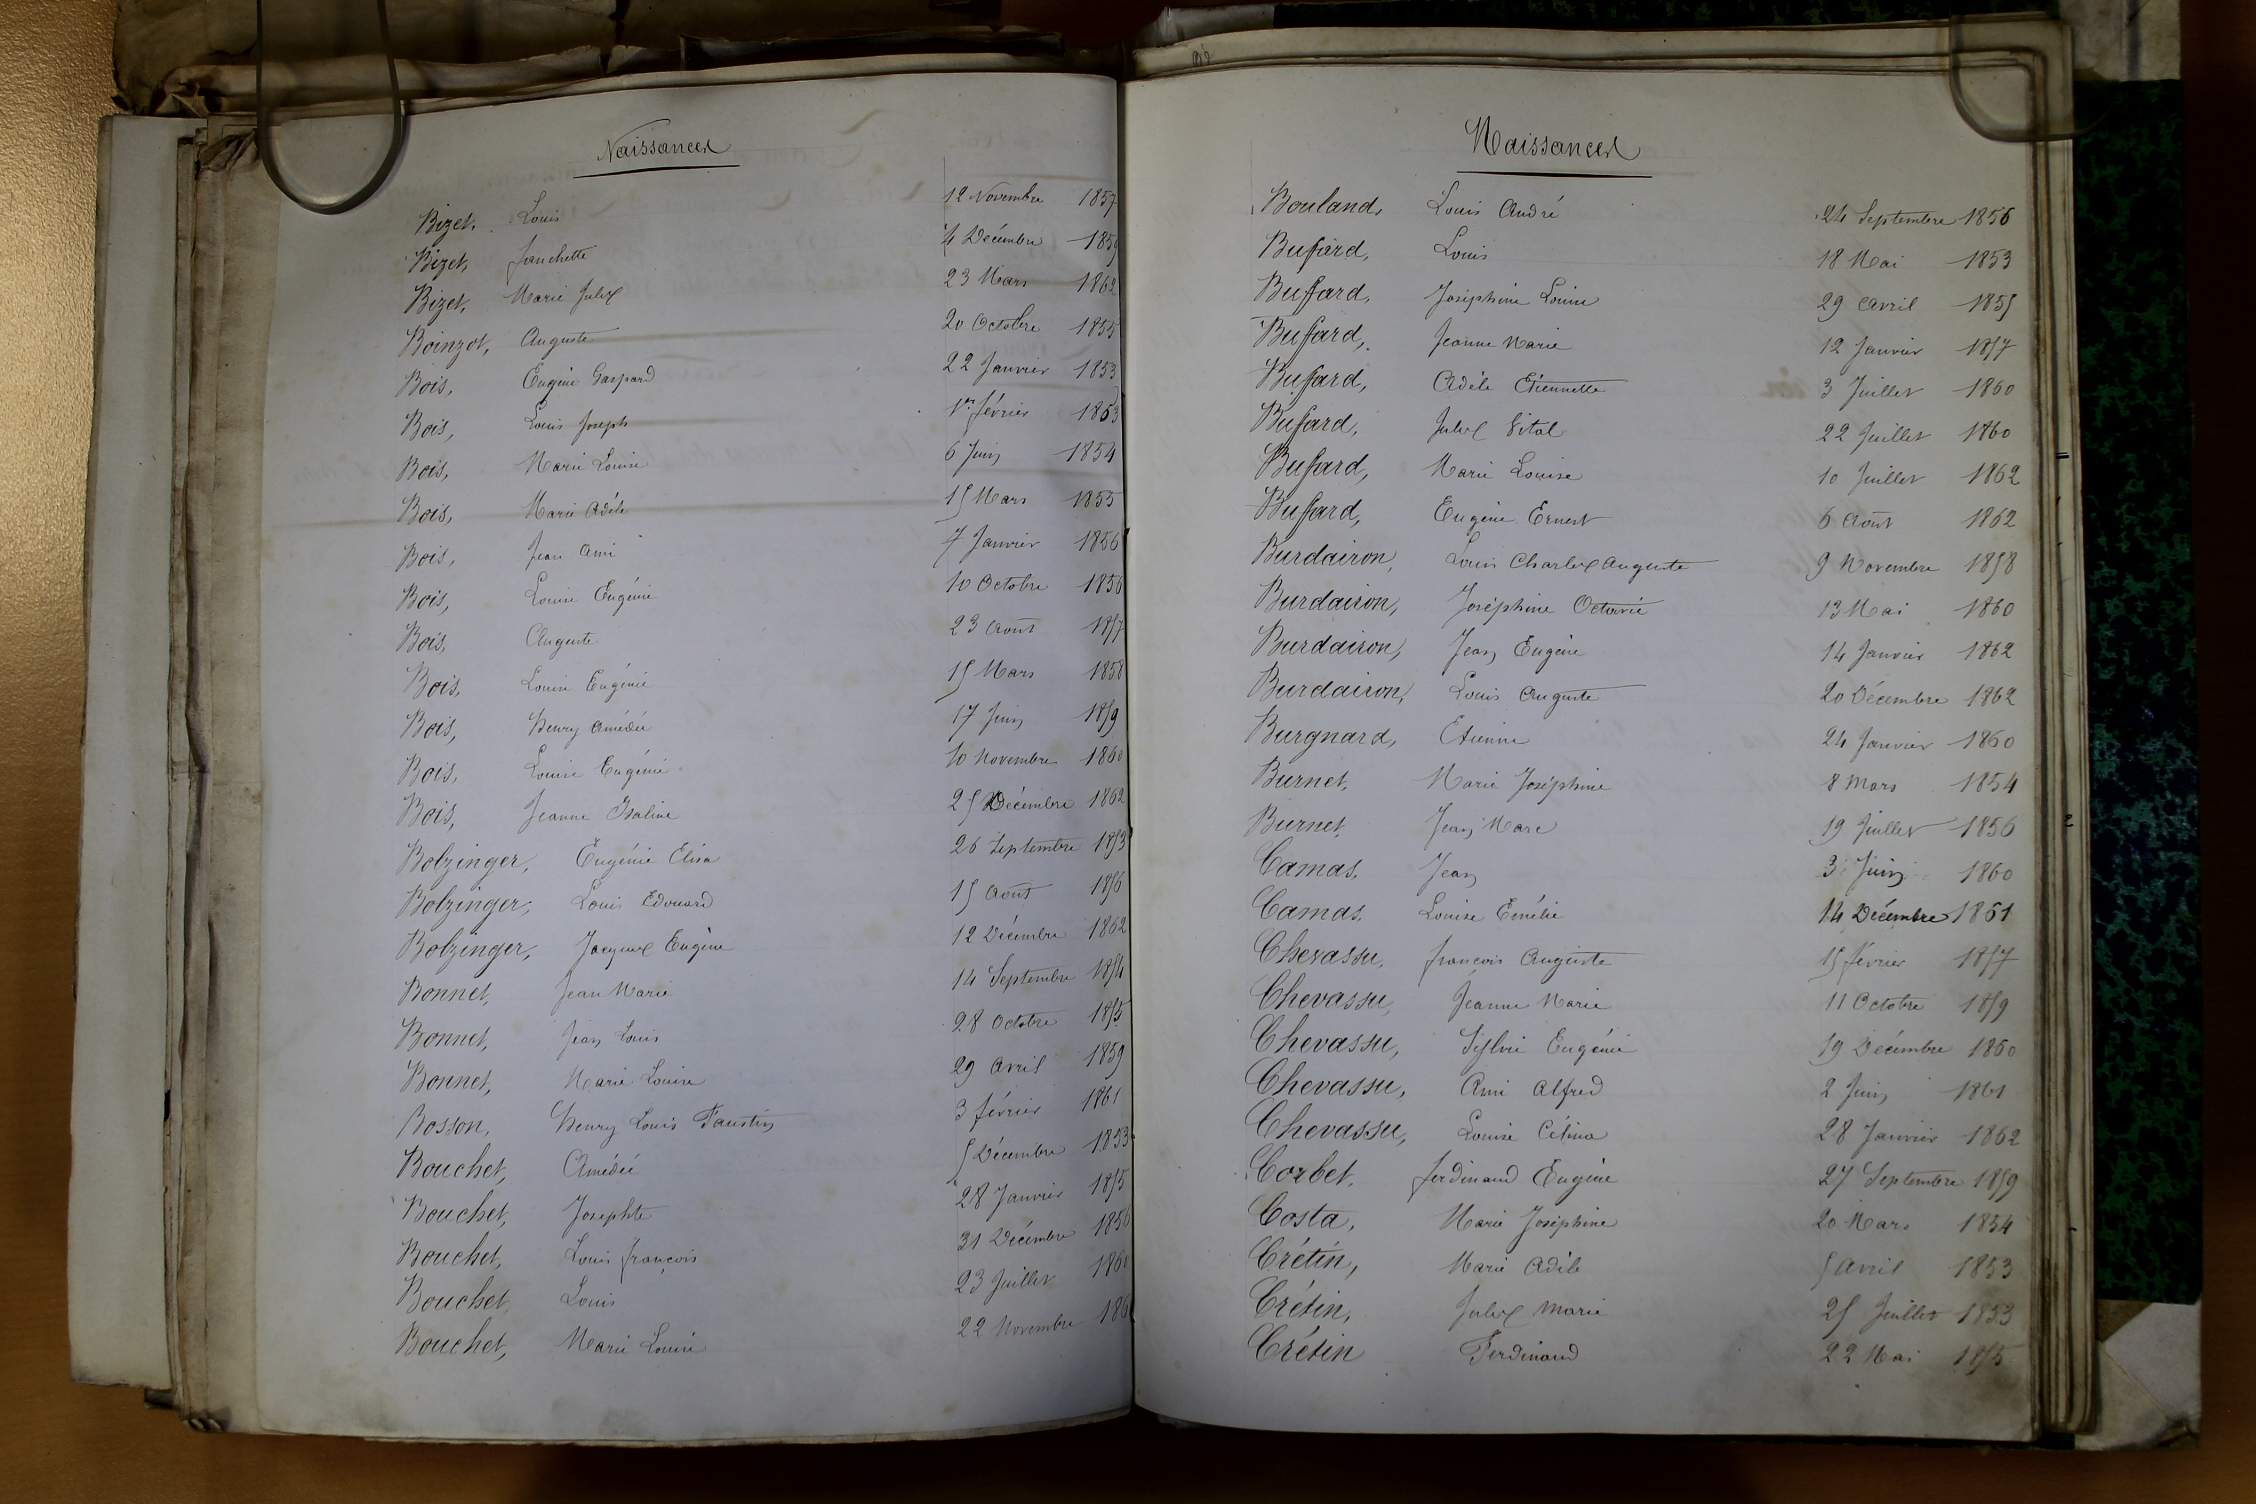 Naissances
Bizet, Louis 12 Novembre 1857
Bizet, Fanchette 4 Décembre 1859
Bizet, Marie Julie 23 Mars 1862
Boinzot, Auguste 20 Octobre 1855
Bois, Eugène Gaspard 22 Janvier 1853
Bois, Louis Joseph 1er février 1853
Bois, Marie Louise 6 Juin 1854
Bois, Marie Adèle 15 Mars 1855
Bois, Jean Ami 7 Janvier 1856
Bois, Louise Eugénie 10 Octobre 1856
Bois, Auguste 23 Août 1857
Bois, Louise Eugénie 15 Mars 1858
Bois, Henry Amédée 17 Juin 1859
Bois, Louise Eugénie 10 Novembre 1860
Bois, Jeanne Isaline 25 Décembre 1862
Bolzinger, Eugénie Elisa 26 Septembre 1853
Bolzinger, Louis Edouard 15 Août 1856
Bolzinger, Jacques Eugène 12 Décembre 1862
Bonnet, Jean Marie 14 Septembre 1854
Bonnet, Jean Louis 28 Octobre 1855
Bonnet, Marie Louise 29 Avril 1859
Bosson, Henry Louis Faustin 3 février 1861
Bouchet, Amédée 5 Décembre 1853
Bouchet, Josephte 28 Janvier 1855
Bouchet, Louis françois 31 Décembre 1856
Bouchet, Louis 23 Juillet 1860
Bouchet, Marie Louise 22 Novembre 186
Naissances
Bouland, Louis André 24 Septembre 1856
Buffard, Louis 18 Mai 1853
Buffard, Joséphine Louise 29 Avril 1855
Buffard, Jeanne Marie 12 Janvier 1857
Buffard, Adèle Etiennette 3 Juillet 1860
Buffard, Jules Vital 22 Juillet 1860
Buffard, Marie Louise 10 Juillet 1862
Buffard, Eugène Ernest 6 Août 1862
Burdairon, Louis Charles Auguste 9 Novembre 1858
Burdairon, Joséphine Octavie 13 Mai 1860
Burdairon, Jean Eugène 14 Janvier 1862
Burdairon, Louis Auguste 20 Décembre 1862
Burgnard, Etienne 24 Janvier 1860
Burnet, Marie Joséphine 8 Mars 1854
Burnet, Jean Marc 19 Juillet 1856
Camas, Jean 3 Juin 1860
Camas, Louise Emélie 14 Décembre 1861
Chevassu, françois Auguste 15 février 1857
Chevassu, Jeanne Marie 11 Octobre 1859
Chevassu, Sylvie Eugénie 19 Décembre 1860
Chevassu, Ami Alfred 2 Juin 1861
Chevassu, Louise Célina 28 Janvier 1862
Corbet, ferdinand Eugène 27 Septembre 1859
Costa, Marie Joséphine 20 Mars 1854
Crétin, Marie Adèle 5 Avril 1853
Crétin, Jules Marie 25 Juillet 1853
Crétin Ferdinand 22 Mai 1855